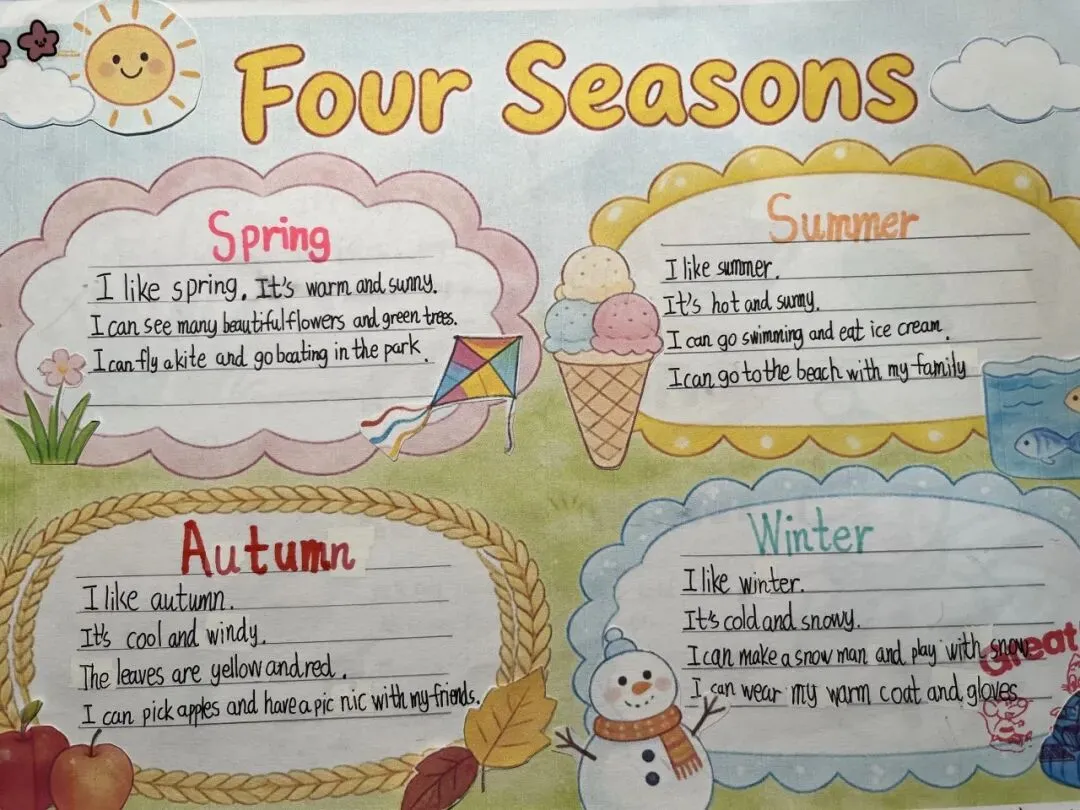 Four Seasons
Spring
I like spring. It's warm and sunny.
I can see many beautiful flowers and green trees.
I can fly a kite and go boating in the park.
Summer
I like summer.
It's hot and sunny.
I can go swimming and eat ice cream.
I can go to the beach with my family
Autumn
I like autumn.
It's cool and windy.
The leaves are yellow and red.
I can pick apples and have a pic nic with my friends.
Winter
I like winter.
It's cold and snowy.
I can make a snow man and play with snow
I can wear my warm coat and gloves
Great